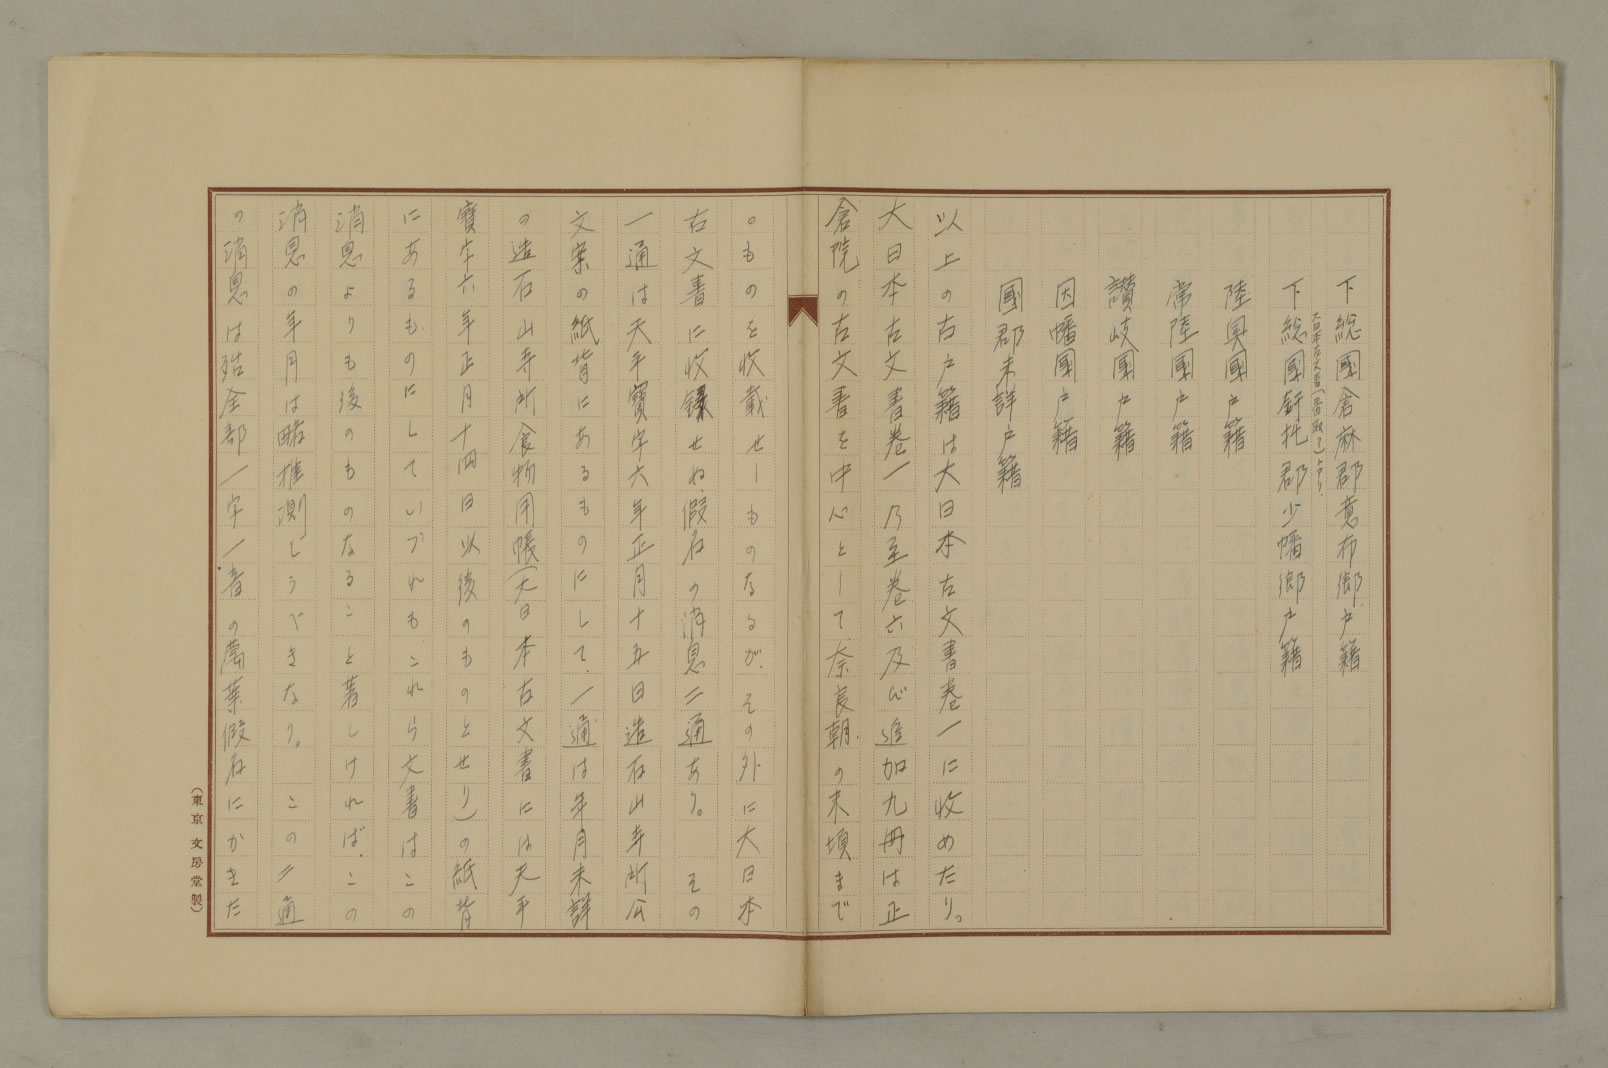 下總國倉麻郡意布鄕戶籍
大日本古文書
下總國釪托郡少幡鄕戶籍
陸奥國戶籍
常陸國戶籍
讃岐國戶籍
因幡國戶籍
國郡未詳戶籍
以上の古戶籍は大日本古文書卷一に收めたり。
大日本古文書卷一乃至卷六及び追加九冊は正
倉院の古文書を中心として奈良朝の末頃まで
のものを收載せしものなるが、その外に大日本
古文書に收錄せぬ假名の消息二通あり。 その
一通は天平寶字六年正月十五日造石山寺所公
文案の紙背にあるものにして、一通は年月未詳
の造石山寺所食物用帳(大日本古文書には天平
寶字六年正月十四日以後のものとせり)の紙背
にあるものにしていづれも、これら文書はこの
消息よりも後のものなること著しければ、この
消息の年月は略推測しうべきなり。 この二通
の消息は殆全部一字一音の萬葉假名にかきた
(東京 文房堂製)